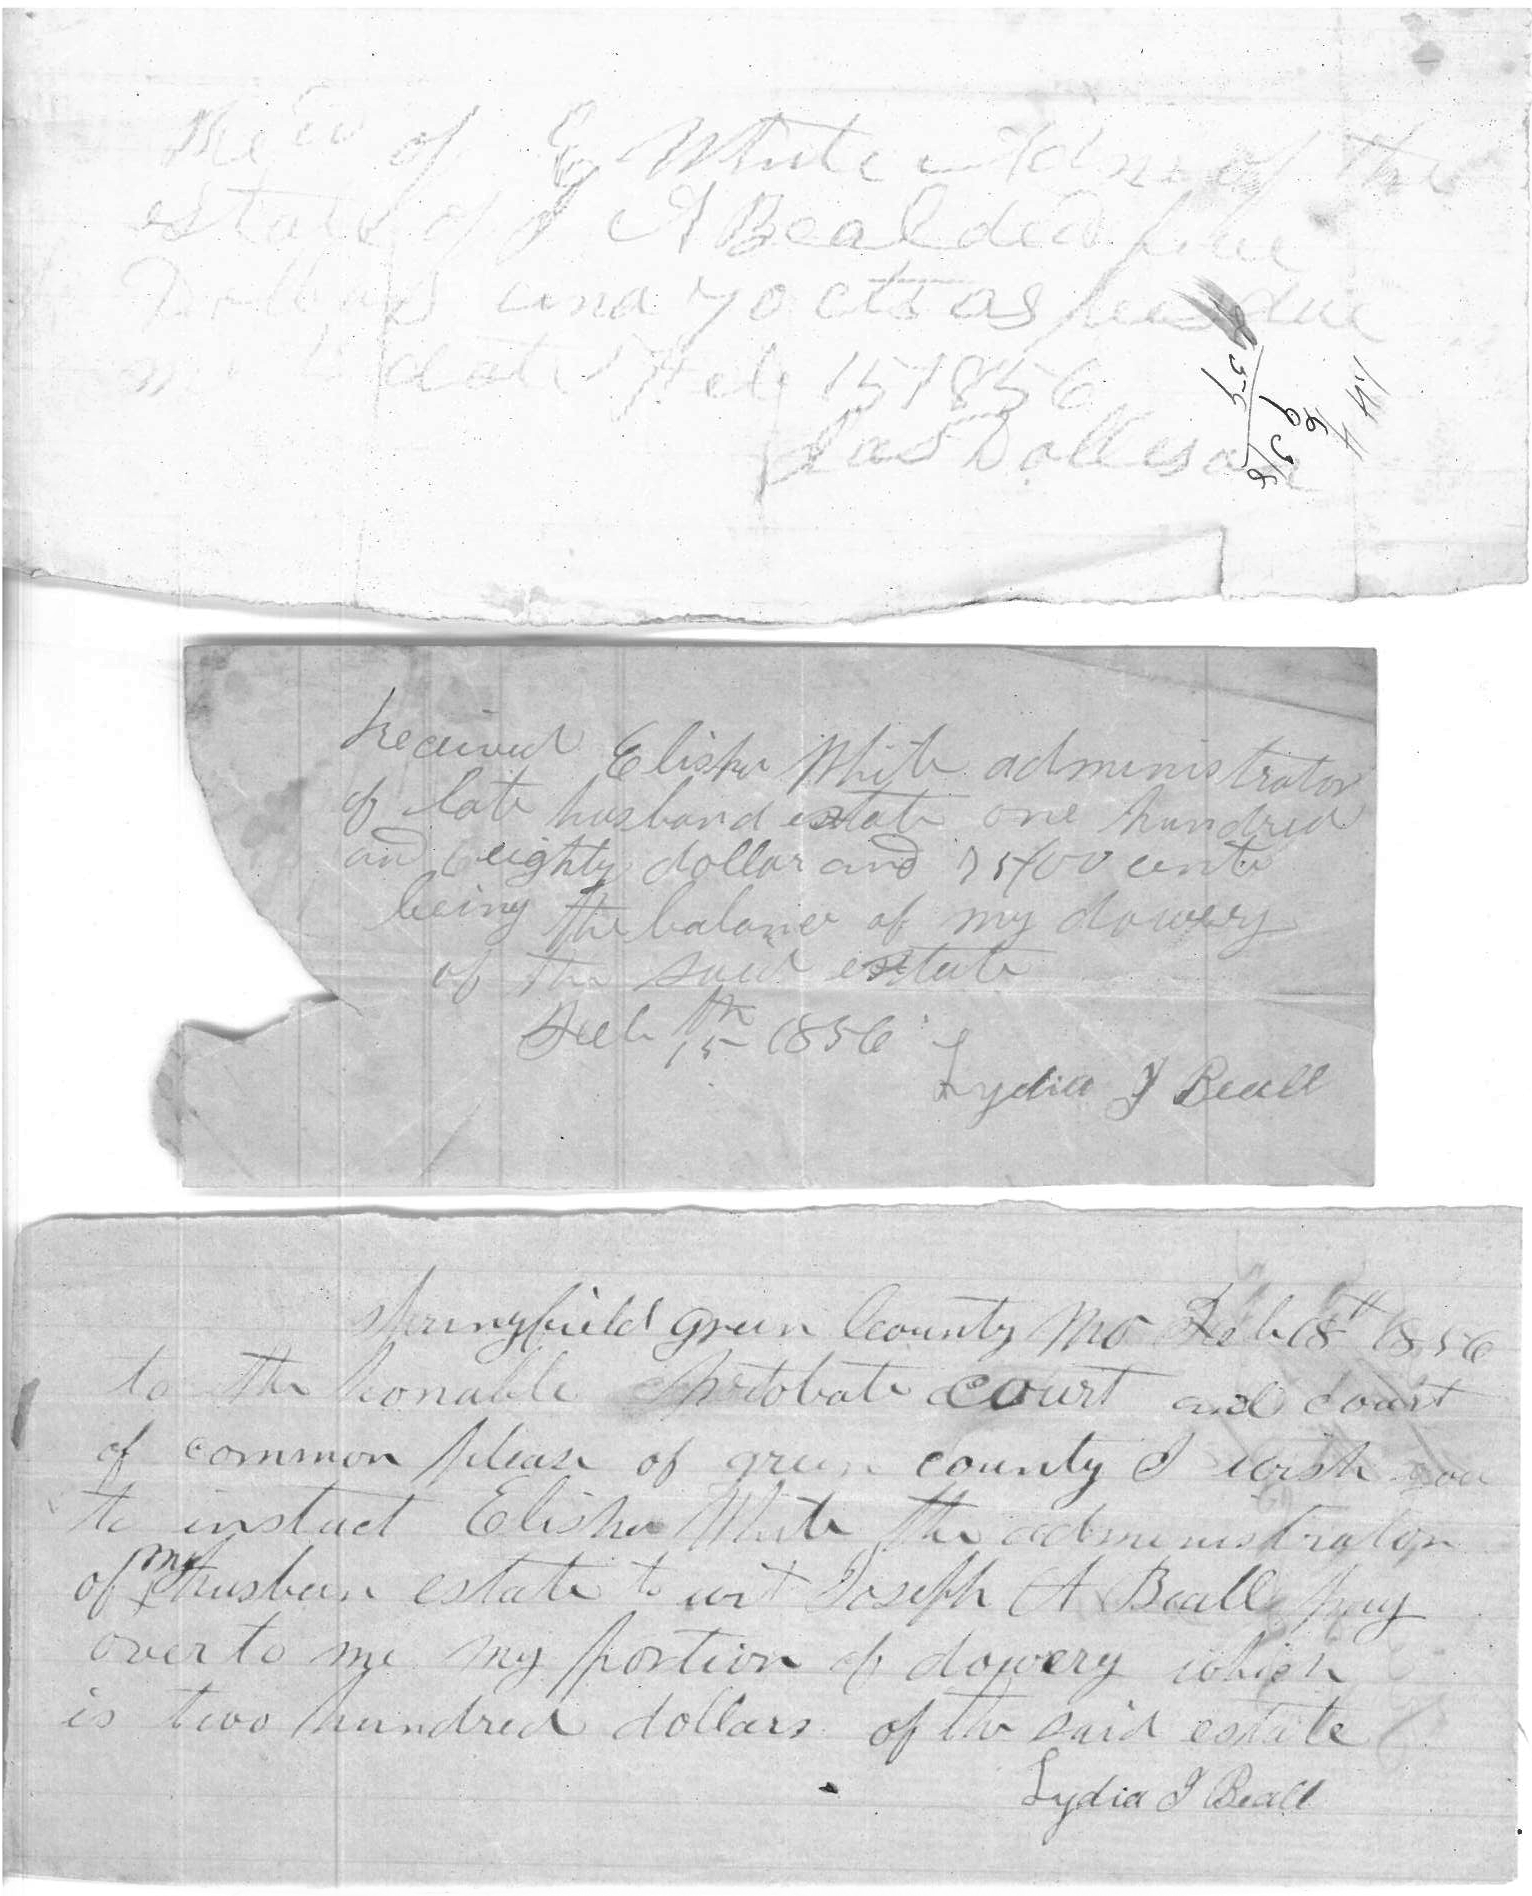 Recd of E White Adm of the
estate of J A Beal decd five
Dollars and 70 cts as fees due
me to date Feb 15 1856
Jas Dollison
Received Elisha White administrator
of late husband estate one hundred
and eighty dollar and 75/100 cents
being the balance of my dowery
of the said estate
Feb 15th 1856
Lydia J Beall
Springfield green County Mo Feb 18th 1856
to the honable Probate court and court
of common please of green county I wish you
to instuct Elisha White the administrator
of my husben estate to wit Joseph A Beall pay
over to me my portion of dowery which
is two hundred dollars of the said estate
Lydia J Beall